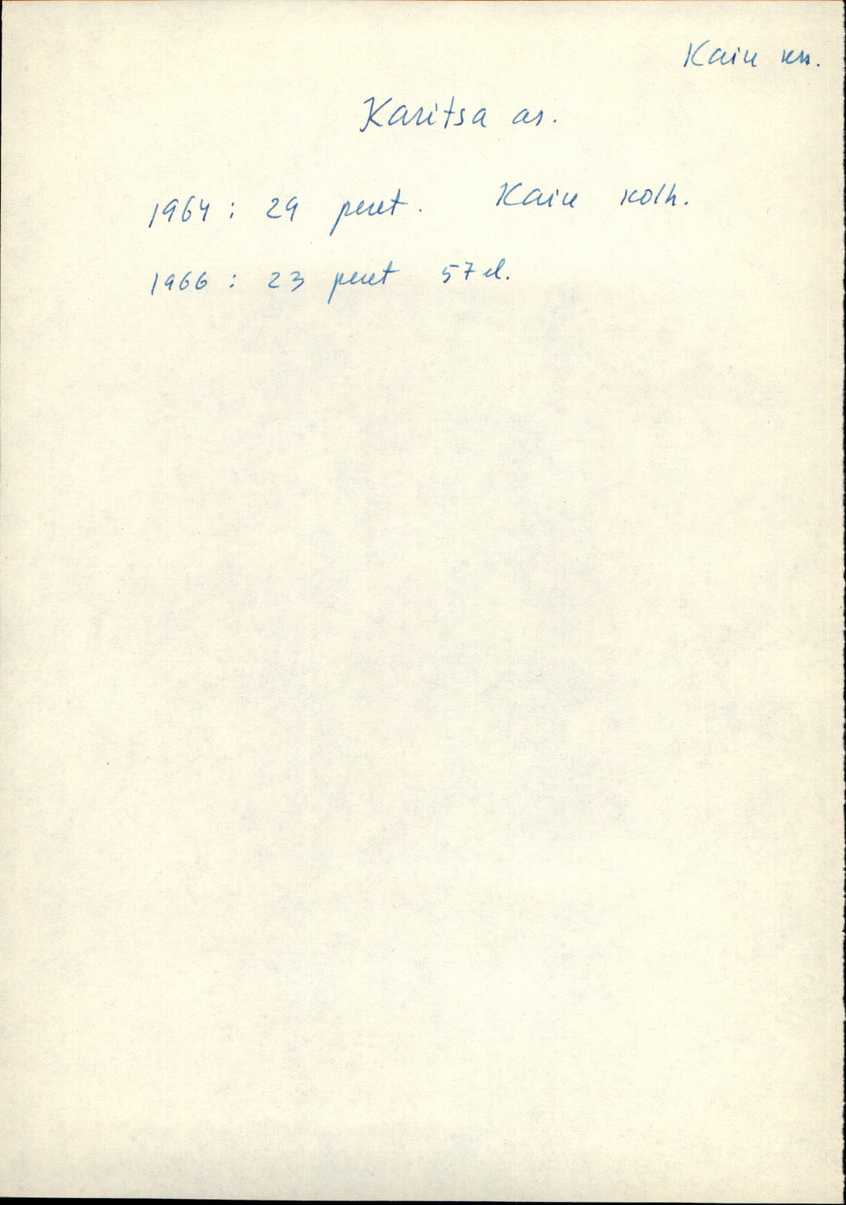 Kaiu kn.
Karitsa as.
1964 : 29 peret. Kaiu kolh.
1966 : 23 peret 57 el.